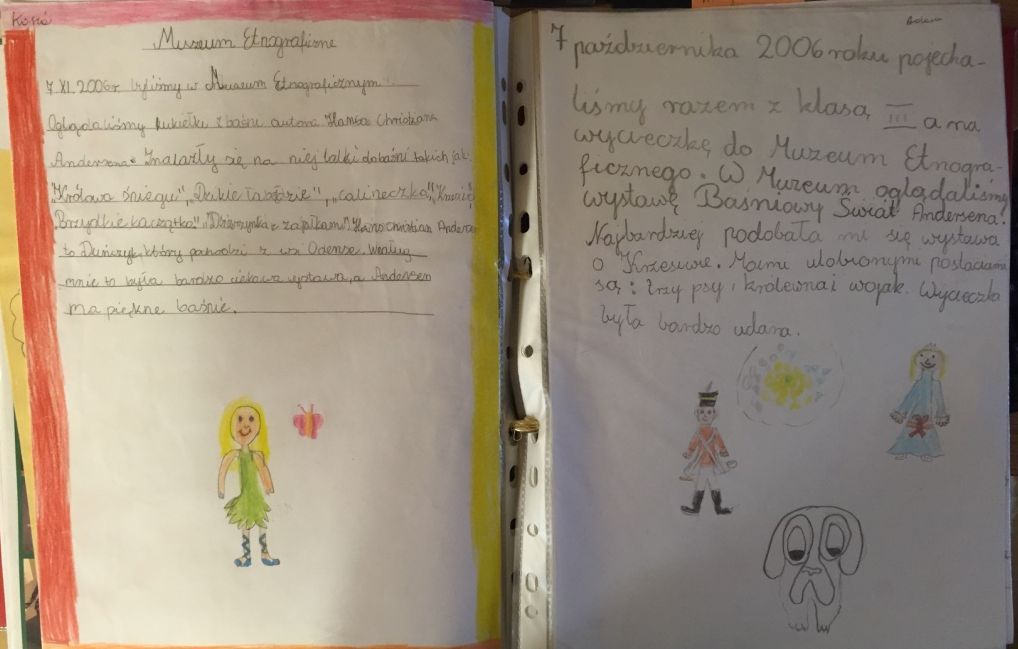 Kasia
Muzeum Etnograficzne
7 XI 2006r byliśmy w Muzeum Etnograficznym.
Oglądaliśmy kukiełki z baśni autora Hansa Christiana
Andersena. Znalazły się na niej lalki do baśni takich jak:
"Królowa śniegu", "Dzikie łabędzie", "calineczka",
Brzydkie kaczątko", "Dziewczynka z zapałkami". Hans Christian Andersen
to Duńczyk, który pochodzi z Odense. Według
mnie to była bardzo ciekawa wystawa, a Andersen
ma piękne baśnie.
7 października 2006 roku pojecha-
liśmy razem z klasą III a na
wycieczkę do Muzeum Etnogra-
ficznego. W Muzeum oglądaliśmy
wystawę Baśniowy Świat Andersena.
Najbardziej podobała mi się wystawa
o Krzesiwie. Moimi ulobionymi postaciami
są: trzy psy, królewna i wojak. Wycieczka
była bardzo udana.